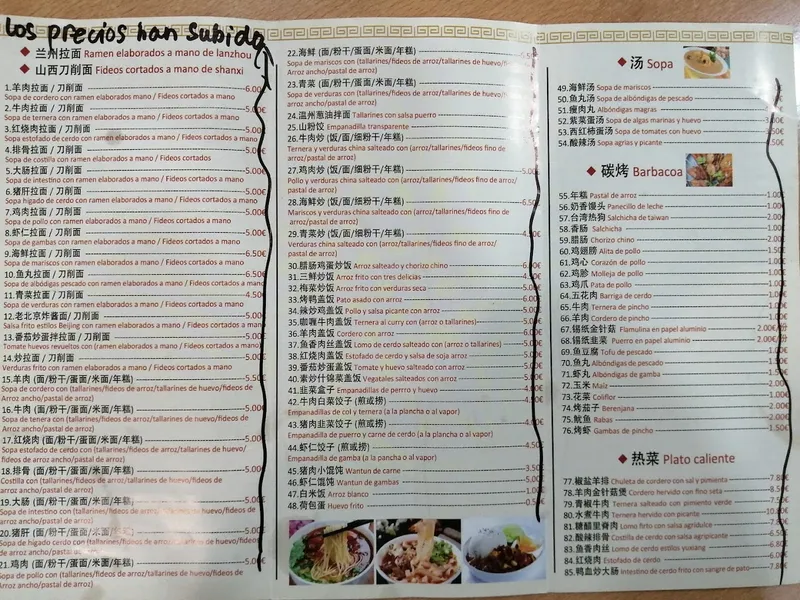 los precios han subido
兰州拉面 Ramen elaborados a mano de lanzhou
山西刀削面 Fideos cortados a mano de shanxi
1.羊肉拉面 / 刀削面 6.00
Sopa de cordero con ramen elaborados mano / Fideos cortados a mano
2.牛肉拉面 / 刀削面 5.00€
Sopa de ternera con ramen elaborados a mano / Fideos cortados a mano
3.红烧肉拉面 / 刀削面 5.00€
Sopa estofado de cerdo con ramen elaborados a mano / Fideos cortados a mano
4.排骨拉面 / 刀削面 5.00€
Sopa de costilla con ramen elaborados a mano / Fideos cortados
5.大肠拉面 / 刀削面 5.00€
Sopa de intestino con ramen elaborados a mano / Fideos cortados a mano
6.猪肝拉面 / 刀削面 5.00€
Sopa higado de cerdo con ramen elaborados a mano / Fideos cortados a mano
7.鸡肉拉面 / 刀削面 5.00€
Sopa de pollo con ramen elaborados a mano / Fideos cortados a mano
8.虾仁拉面 / 刀削面 5.00
Sopa de gambas con ramen elaborados a mano / Fideos cortados a mano
9.海鲜拉面 / 刀削面 6.50€
Sopa de mariscos con ramen elaborados a mano / Fideos cortados a mano
10.鱼丸拉面 / 刀削面 5.00€
Sopa de albódigas pescado con ramen elaborados a mano / Fideos cortados a mano
11.青菜拉面 / 刀削面 4.50€
Sopa de verduras con ramen elaborados a mano / Fideos cortados a mano
12.老北京炸酱面/ 刀削面
Salsa frito estilos Beijing con ramen elaborados a mano / Fideos cortados a mano
13.番茄炒蛋拌拉面 / 刀削面
Tomate huevos revueltos con (ramen elaborados a mano / Fideos cortados a mano)
14.炒拉面 / 刀削面
Verduras frito con ramen elaborados a mano / Fideos cortados a mano
15.羊肉 (面/粉干/蛋面/米面/年糕) 5.50
Sopa de cordero con (tallarines/fideos de arroz/tallarines de huevo/fideos de
Arroz ancho/pastal de arroz)
16.牛肉 (面/粉干/蛋面/米面/年糕) 5.00
Sopa de tenera con (tallarines/fideos de arroz/tallarines de huevo/fideos de
Arroz ancho/pastal de arroz)
17.红烧肉 (面/粉干/蛋面/米面/年糕) 5.00
Sopa estofado de cerdo con (tallarines/fideos de arroz/tallarines de huevo/
fideos de arroz ancho/pastal de arroz)
18.排骨 (面/粉干/蛋面/米面/年糕) 5.00
Costilla con (tallarines/fideos de arroz/tallarines de huevo/fideos de
arroz ancho/pastal de arroz)
19.大肠 (面/粉干/蛋面/米面/年糕) 5.00
Sopa de intestino con (tallarines/fideos de arroz/tallarines de huevo/fideos
de arroz ancho/pastal de arroz)
20.猪肝 (面/粉干/蛋面/米面/年糕) 5.00
Sopa de higado cerdo con (tallarines/fideos de arroz/tallarines de huevo/fideos
de arroz ancho/pastal de arroz)
21.鸡肉 (面/粉干/蛋面/米面/年糕) 5.00
Sopa de pollo con (tallarines/fideos de arroz/tallarines de huevo/fideos de
Arroz ancho/pastal de arroz)
22.海鲜 (面/粉干/蛋面/米面/年糕)
Sopa de mariscos con (tallarines/fideos de arroz/tallarines de huevo/fideos de
Arroz ancho/pastal de arroz)
23.青菜 (面/粉干/蛋面/米面/年糕)
Sopa de verduras con (tallarines/fideos de arroz/tallarines de huevo/fideos de
Arroz ancho/pastal de arroz)
24.温州葱油拌面 Tallarines con salsa puerro
25.山粉饺 Empanadilla transparente
26.牛肉炒 (饭/面/细粉干/年糕)
Ternera y verduras china salteado con (arroz/tallarines/fideos fino de
arroz/pastal de arroz)
27.鸡肉炒 (饭/面/细粉干/年糕) 5.00€
Pollo y verduras china salteado con (arroz/tallarines/fideos fino de arroz/
pastal de arroz)
28.海鲜炒 (饭/面/细粉干/年糕) 6.50€
Mariscos y verduras china salteado con (arroz/tallarines/fideos fino de
arroz/pastal de arroz)
29.青菜炒 (饭/面/细粉干/年糕) 4.50€
Verduras china salteado con (arroz/tallarines/fideos fino de arroz/
pastal de arroz)
30.腊肠鸡蛋炒饭 Arroz salteado y chorizo chino 6.00€
31.三鲜炒饭 Arroz frito con tres delicias
32.梅菜炒饭 Arroz frito con verduras seca
33.烤鸭盖饭 Pato asado con arroz
34.辣炒鸡盖饭 Pollo y salsa picante con arroz
35.咖喱牛肉盖饭 Ternera al curry con (arroz o tallarines)
36.羊肉盖饭 Cordero con arroz
37.鱼香肉丝盖饭 Lomo de cerdo salteado con (arroz o tallarines)
38.红烧肉盖饭 Estofado de cerdo y salsa de soja arroz
39.番茄炒蛋盖饭 Tomate y huevo salteado con arroz
40.素炒什锦菜盖饭 Vegatales salteados con arroz
41.韭菜盒子 Empanadillas de perrro y huevo
42.牛肉白菜饺子 (煎或捞)
Empanadillas de col y ternera (a la plancha o al vapor)
43.猪肉韭菜饺子 (煎或捞)
Empanadilla de puerro y carne de cerdo (a la plancha o al vapor)
44.虾仁饺子 (煎或捞) 4.50€
Empanadilla de gamba (a la plancha o al vapor)
45.猪肉小馄饨 Wantun de carne 3.50€
46.虾仁馄饨 Wantun de gambas 5.00€
47.白米饭 Arroz blanco 1.00€
48.荷包蛋 Huevo frito 0.50
汤 Sopa
49.海鲜汤 Sopa de mariscos
50.鱼丸汤 Sopa de albóndigas de pescado
51.瘦肉丸 Albóndigas magras
52.紫菜蛋汤 Sopa de algas marinas y huevo 3.00€
53.西红柿蛋汤 Sopa de tomates con huevo 3.50€
54.酸辣汤 Sopa agrias y picante 3.50€
碳烤 Barbacoa
55.年糕 Pastal de arroz 1.00€
56.奶香馒头 Panecillo de leche 1.00€
57.台湾热狗 Salchicha de taiwan 2.00€
58.香肠 Salchicha 1.00€
59.腊肠 Chorizo chino 2.00€
60.鸡翅膀 Alita de pollo 1.50€
61.鸡心 Corazón de pollo 1.00€
62.鸡胗 Molleja de pollo 1.00€
63.鸡爪 Pata de pollo 1.00€
64.五花肉 Barriga de cerdo 1.00€
65.牛肉 Ternera de pincho 1.00€
66.羊肉 Cordero de pincho 1.00€
67.锡纸金针菇 Flamulina en papel aluminio 2.00€/份
68.锡纸韭菜 Puerro en papel aluminio 2.00€/份
69.鱼豆腐 Tofu de pescado 1.00€
70.鱼丸 Albóndigas de pescado 1.50€
71.虾丸 Albóndigas de gamba 1.50€
72.玉米 Maíz 2.00€
73.花菜 Coliflor 1.00€
74.烤茄子 Berenjena 2.00€
75.鱿鱼 Rabas 2.00€
76.烤虾 Gambas de pincho 1.50€
热菜 Plato caliente
77.椒盐羊排 Chuleta de cordero con sal y pimienta 7.80€
78.羊肉金针菇煲 Cordero hervido con fino seta 8.50€
79.青椒牛肉 Ternera salteado con pimiento verde 7.50€
80.水煮牛肉 Ternera hervido con picante 10.80€
81.糖醋里脊肉 Lomo firto con salsa agridulce
82.酸辣排骨 Costilla de cerdo con salsa agripicante 6.50€
83.鱼香肉丝 Lomo de cerdo estilos yuxiang 6.80€
84.红烧肉 Estofado de cerdo
85.鸭血炒大肠 Intestino de cerdo frito con sangre de pato 7.80€